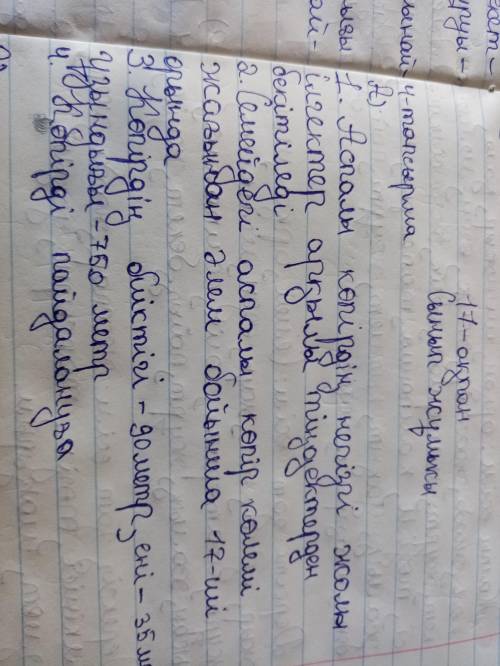 17-ақпан
Сынып жұмысы
4-тапсырма
2)
1. Аспалы көпірдің негізгі жолы
ілгектер арқылы тіндектерден
бекітіледі
2. Семейдегі аспалы көпір көлемі
жағынан әлем бойынша 17-ші
орында
3. Көпірдің биіктігі - 90 метр, ені - 35 м
Ұзындығы - 750 метр
4. Көпірді пайдалануға